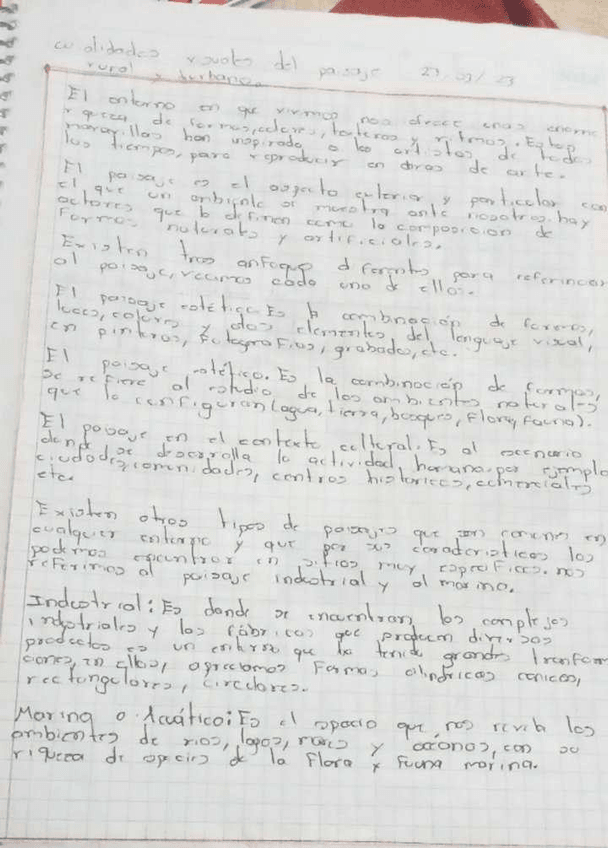 cualidades visuales del paisaje 27.03/23
rural y urbano.
El entorno en que vivimos nos ofrece enorme
riqueza de formas, colores, texturas y ritmos. Estas
maravillas han inspirado a los artistas de todos
los tiempos, para reproducir en obras de arte.
El paisaje es el aspecto exterior y particular con
el que un ambiente se muestra ante nosotros. hay
actores que lo definen como la composición de
formas naturales y artificiales.
Existen tres enfoque diferents para referirnos
al paisaje, veamos cada uno de ellos.
El paisaje estético. Es la combinación de formas,
luces, colores y elementos del lenguaje visual,
en pinturas, fotografías, grabados, etc.
El paisaje estético. Es la combinación de formas,
se refiere al estudio de los ambientes naturales
que lo configuran (agua, tierra, bosques, flora, fauna).
El paisaje en el contexto cultural. Es al escenario
donde se desarrolla la actividad humana por ejemplo
ciudades, comunidades, centros históricos, comerciales
etc.
Existen otros tipos de paisajes que son comunes en
cualquier entorno y que por sus características los
podemos encontrar en sitios muy específicos. nos
referimos al paisaje industrial y al marino.
Industrial: Es donde se encuentran los complejos
industriales y las fábricas que producen diversos
productos es un entorno que ha tenido grandes tranforma
ciones, en ellos, apreciamos formas cilindricas conicas,
rectangulares, circulares.
Marino o Acuático: Es el espacio que nos revela los
ambientes de rios, lagos, mares y océanos, con su
riqueza de especies de la flora y fauna marina.